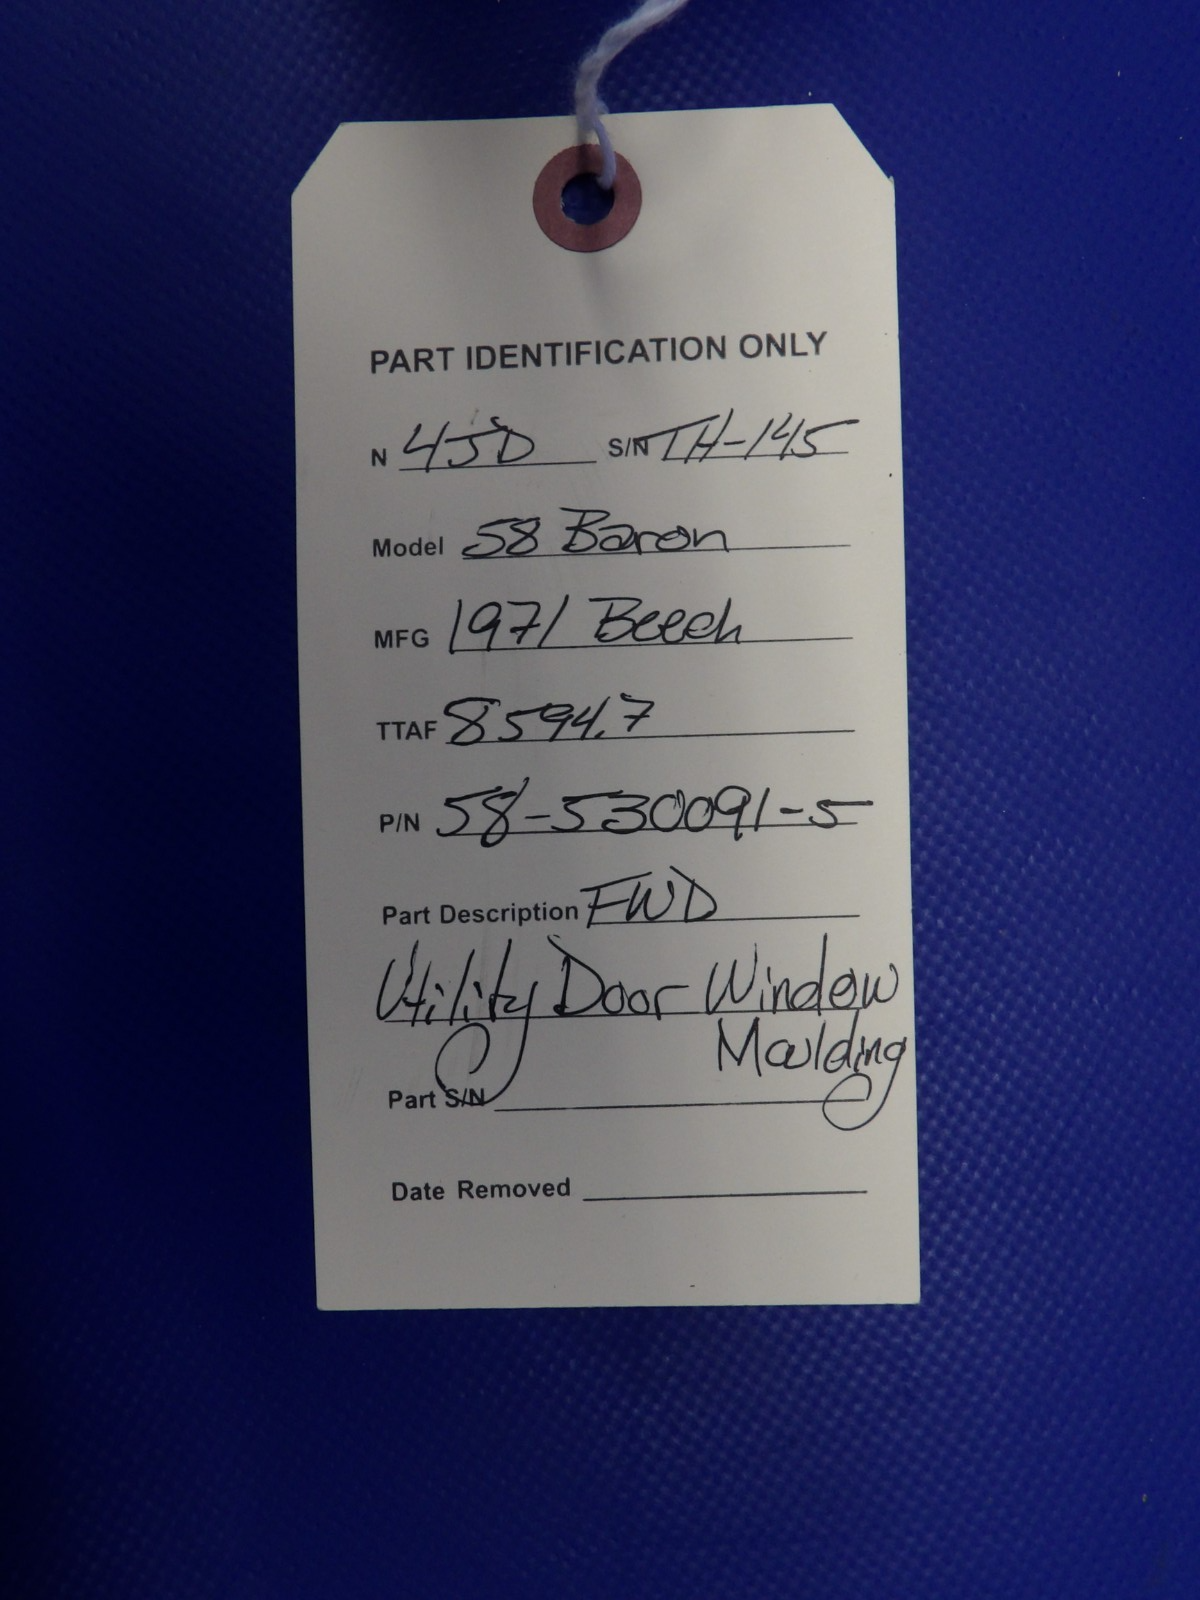 PART IDENTIFICATION ONLY
N 4JD S/N TH-145
Model 58 Baron
MFG 1971 Beech
TTAF 8594.7
P/N 58-530091-5
Part Description FWD
Utility Door Window
Moulding
Part S/N
Date Removed